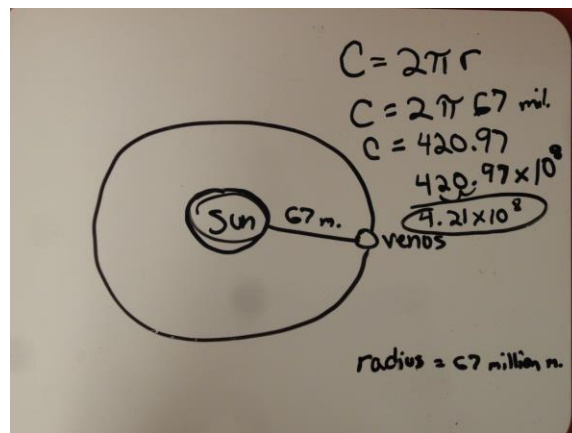 C = 2π r
C = 2π 67 mil.
C = 420.97
420.97 x 10⁸
4.21 x 10⁸
Sun
67 m.
venos
radius = 67 million m.